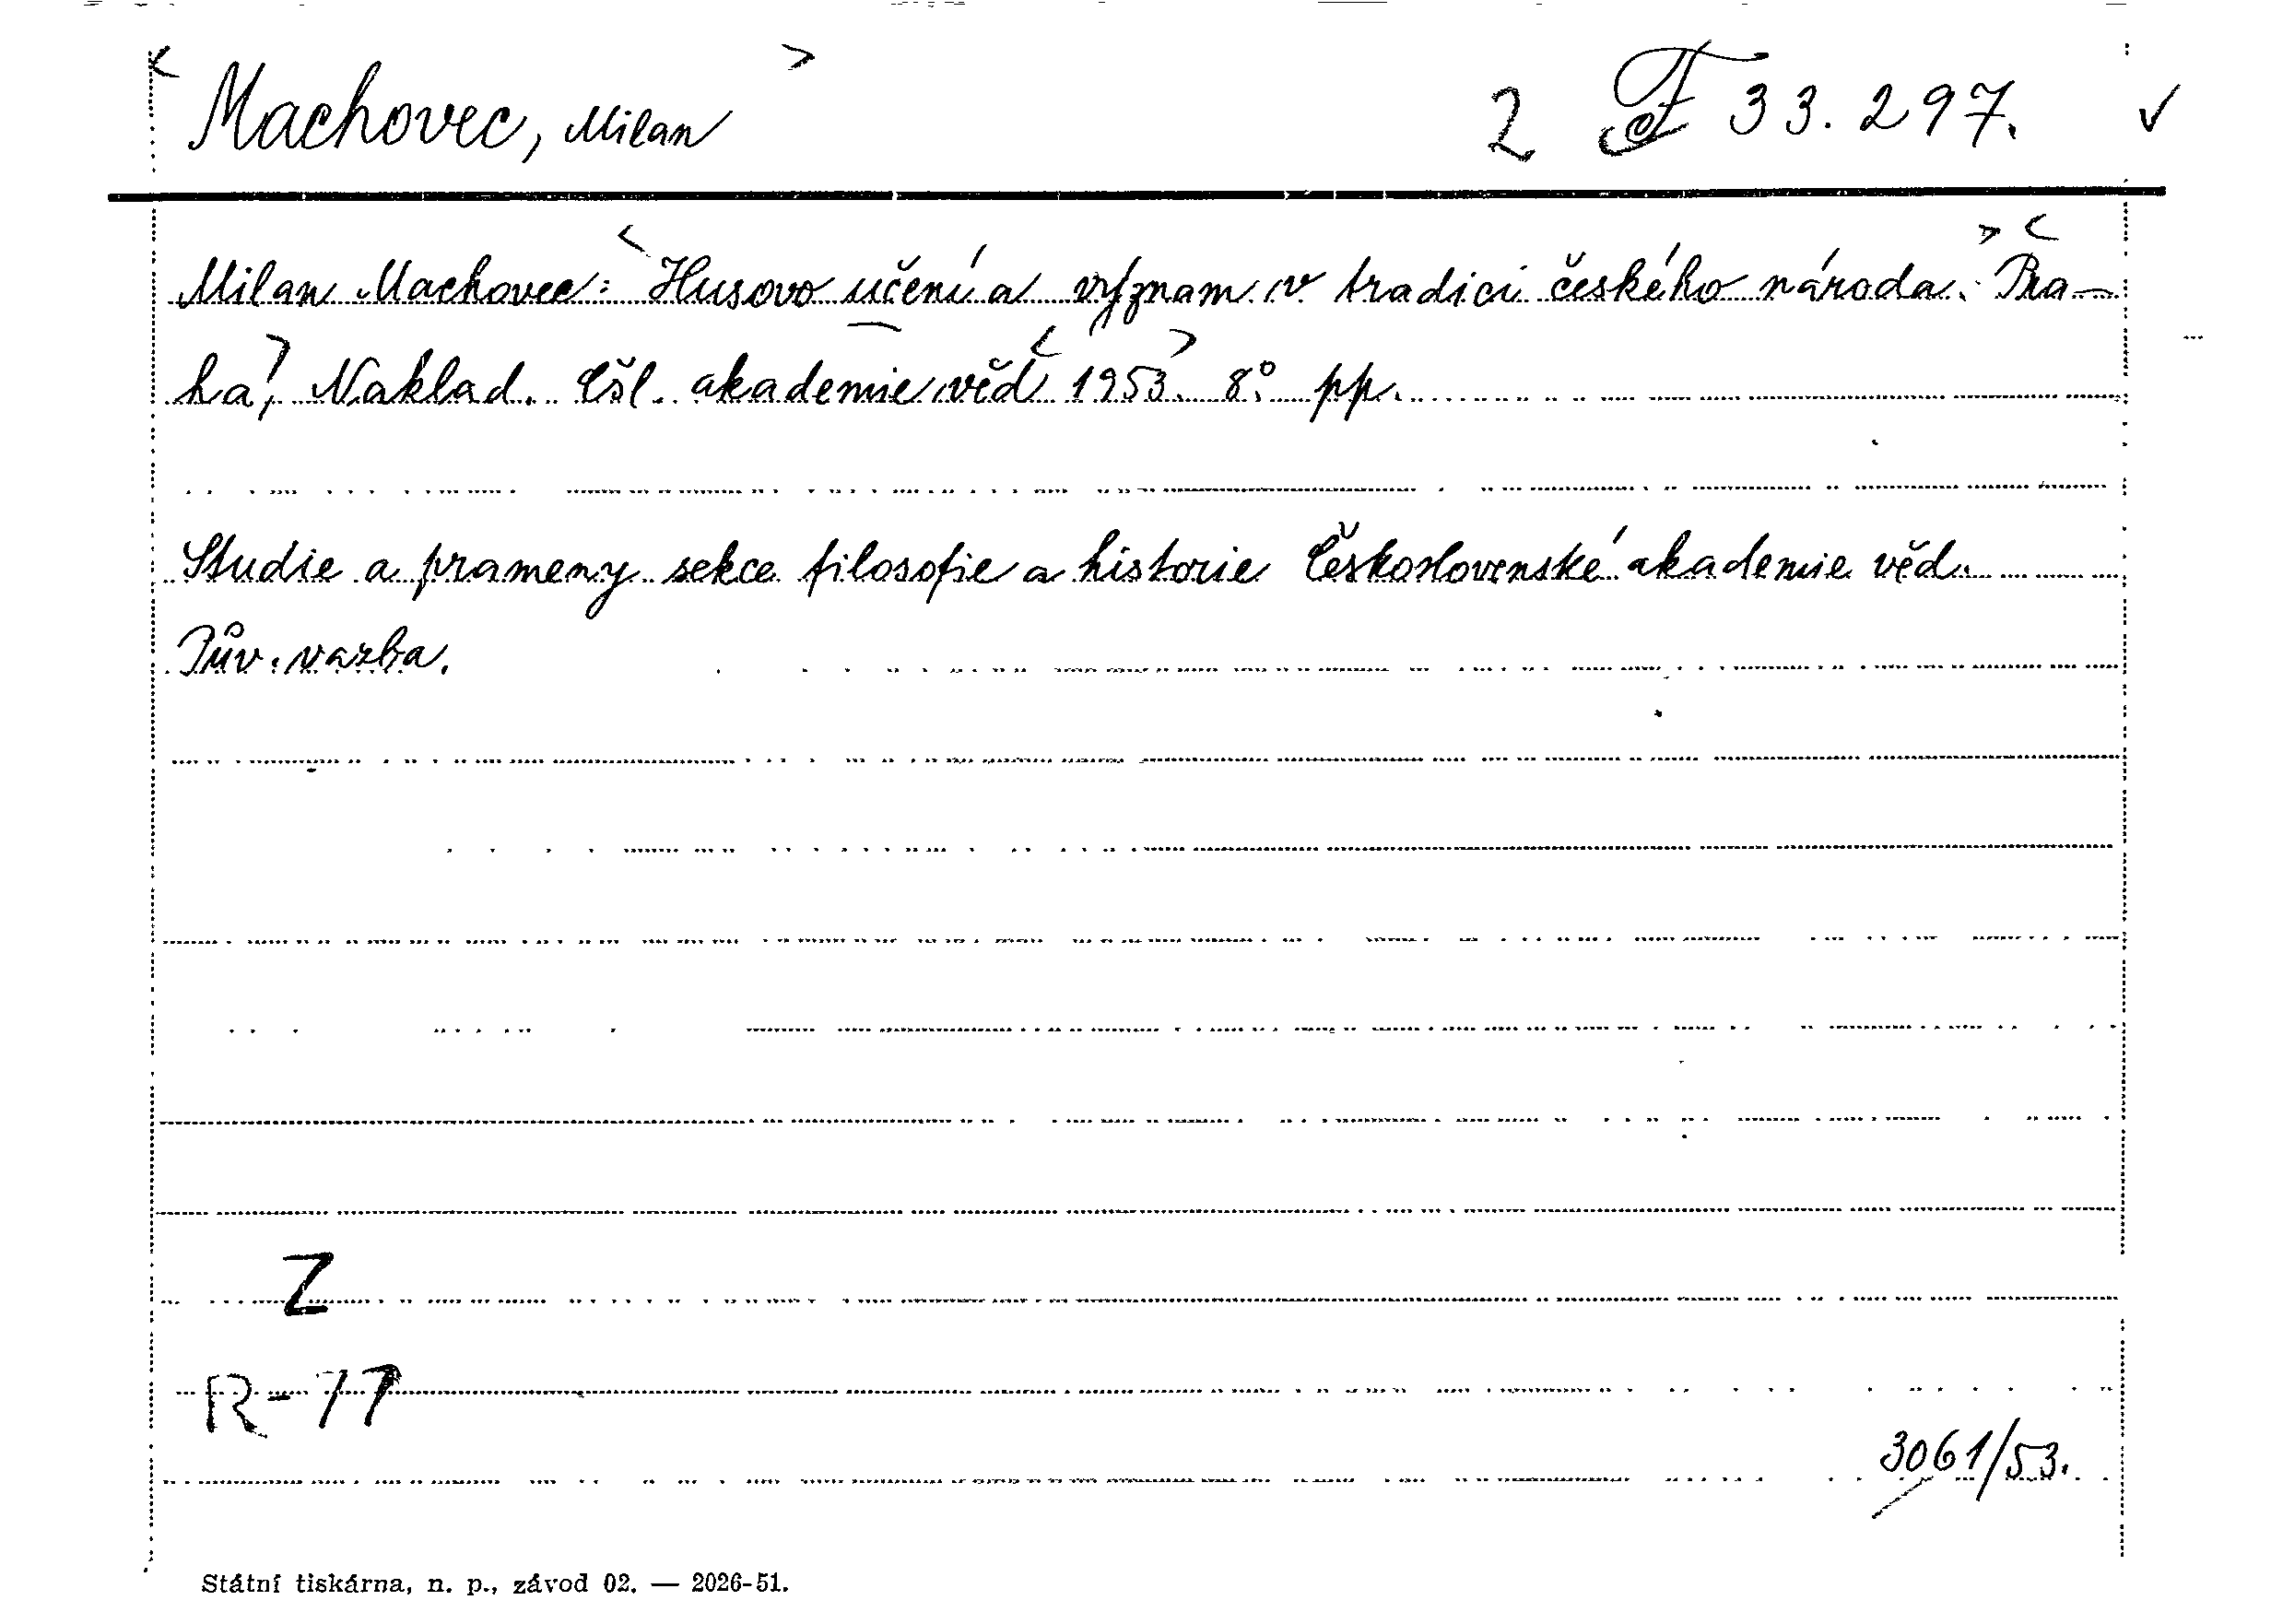 < Machovec, Milan > 2 F 33.297. ✓
Milan Machovec: <Husovo učení a význam v tradici českého národa.> <Pra-
ha>, Naklad. Čsl. akademie věd <1953.> 8° pp.
Studie a prameny sekce filosofie a historie Československé akademie věd.
Pův. vazba.
Z
R-77
3061/53.
Státní tiskárna, n. p., závod 02. — 2026-51.